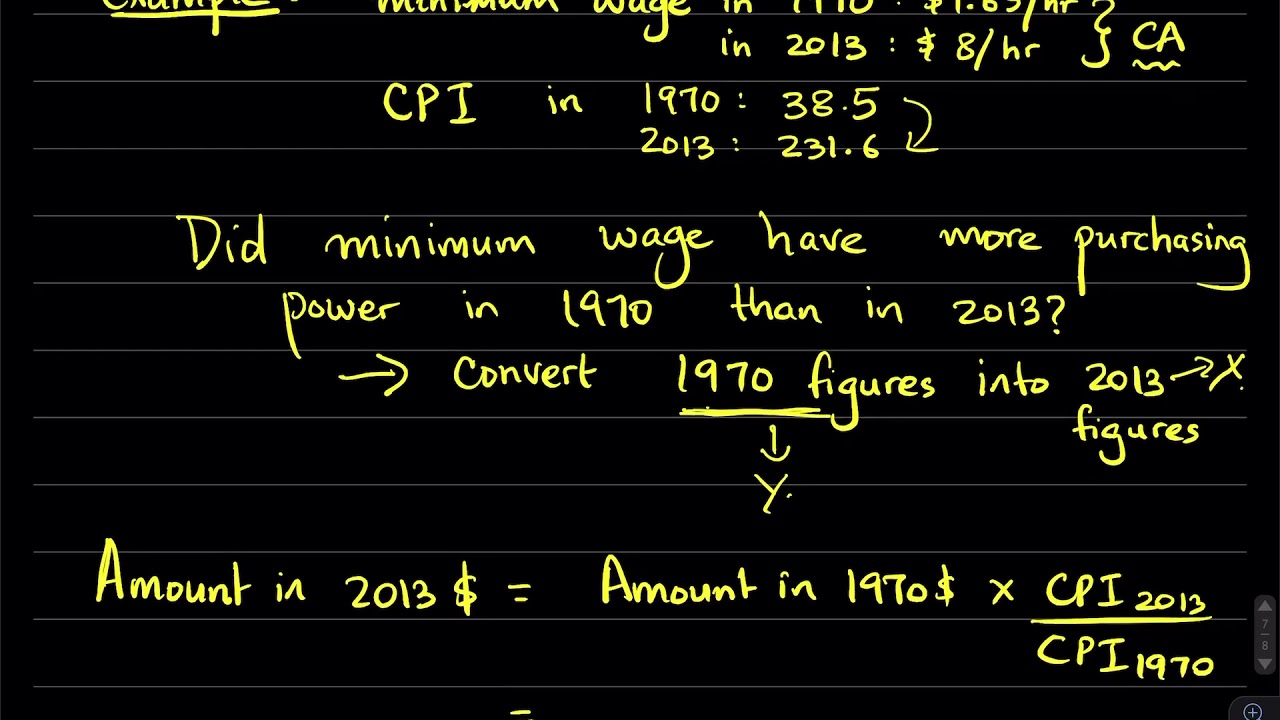 Example : minimum wage in 1970 : $1.65/hr
in 2013 : $ 8/hr } CA
CPI in 1970 : 38.5
2013 : 231.6
Did minimum wage have more purchasing
power in 1970 than in 2013?
→ Convert 1970 figures into 2013 → X.
figures
↓
Y.
Amount in 2013 $ = Amount in 1970 $ x CPI 2013
CPI 1970
=
7
8